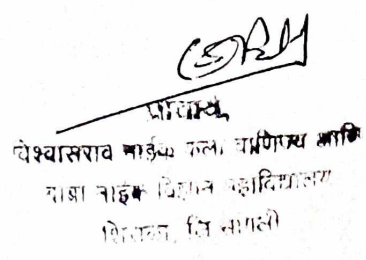 प्राचार्य
विश्वासराव नाईक कला वाणिज्य आणि
बाबा नाईक विज्ञान महाविद्यालय
शिराळा, जि. सांगली